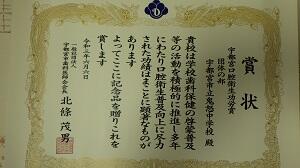 賞状
宇都宮口腔衛生功労賞
団体の部
宇都宮市立鬼怒中学校 殿
貴校は学校歯科保健の啓蒙普及
等の活動を積極的に推進し多年
にわたり口腔衛生普及向上に尽力
された功績はまことに顕著なものが
あります
よってここに記念品を贈りこれを
賞します
令和三年六月六日
一般社団法人
宇都宮市歯科医師会会長
北條茂男